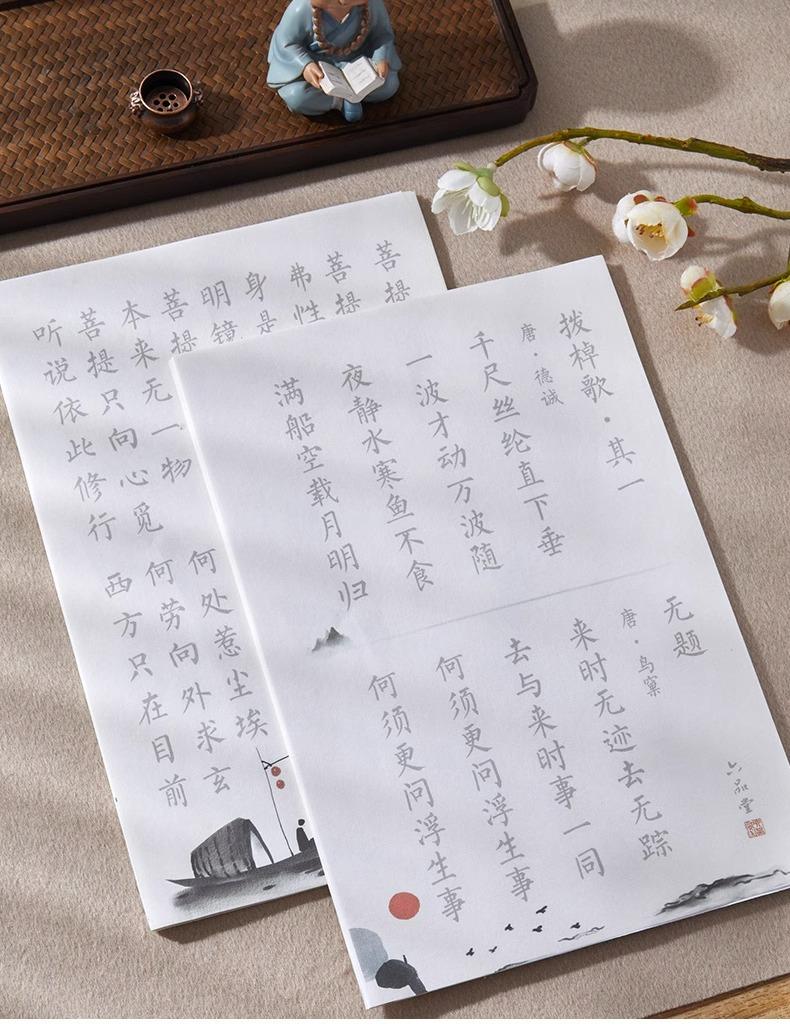 拨棹歌·其一
唐·德诚
千尺丝纶直下垂
一波才动万波随
夜静水寒鱼不食
满船空载月明归
无题
唐·鸟窠
来时无迹去无踪
去与来时事一同
何须更问浮生事
何须更问浮生事
六品堂
菩提
菩提
弗性
身是
明镜
菩提
本来无一物
何处惹尘埃
菩提只向心觅
何劳向外求玄
听说依此修行
西方只在目前